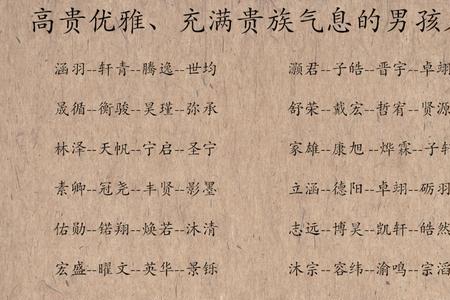 高贵优雅、充满贵族气息的男孩
涵羽--轩青--腾逸--世均 灏君--子皓--晋宇--卓翊
晟循--衡骏--昊瑾--弥承 舒荣--戴宏--哲宥--贤源
林泽--天帆--宁启--圣宁 家雄--康旭 --烨霖--子轩
素卿--冠尧--丰贤--影墨 立涵--德阳--卓翊--砺羽
佑勋--锘翔--焕若--沐清 志远--博昊--凯轩--皓然
宏盛--曜文--英华--景铄 沐宗--容纬--渝鸣--宗